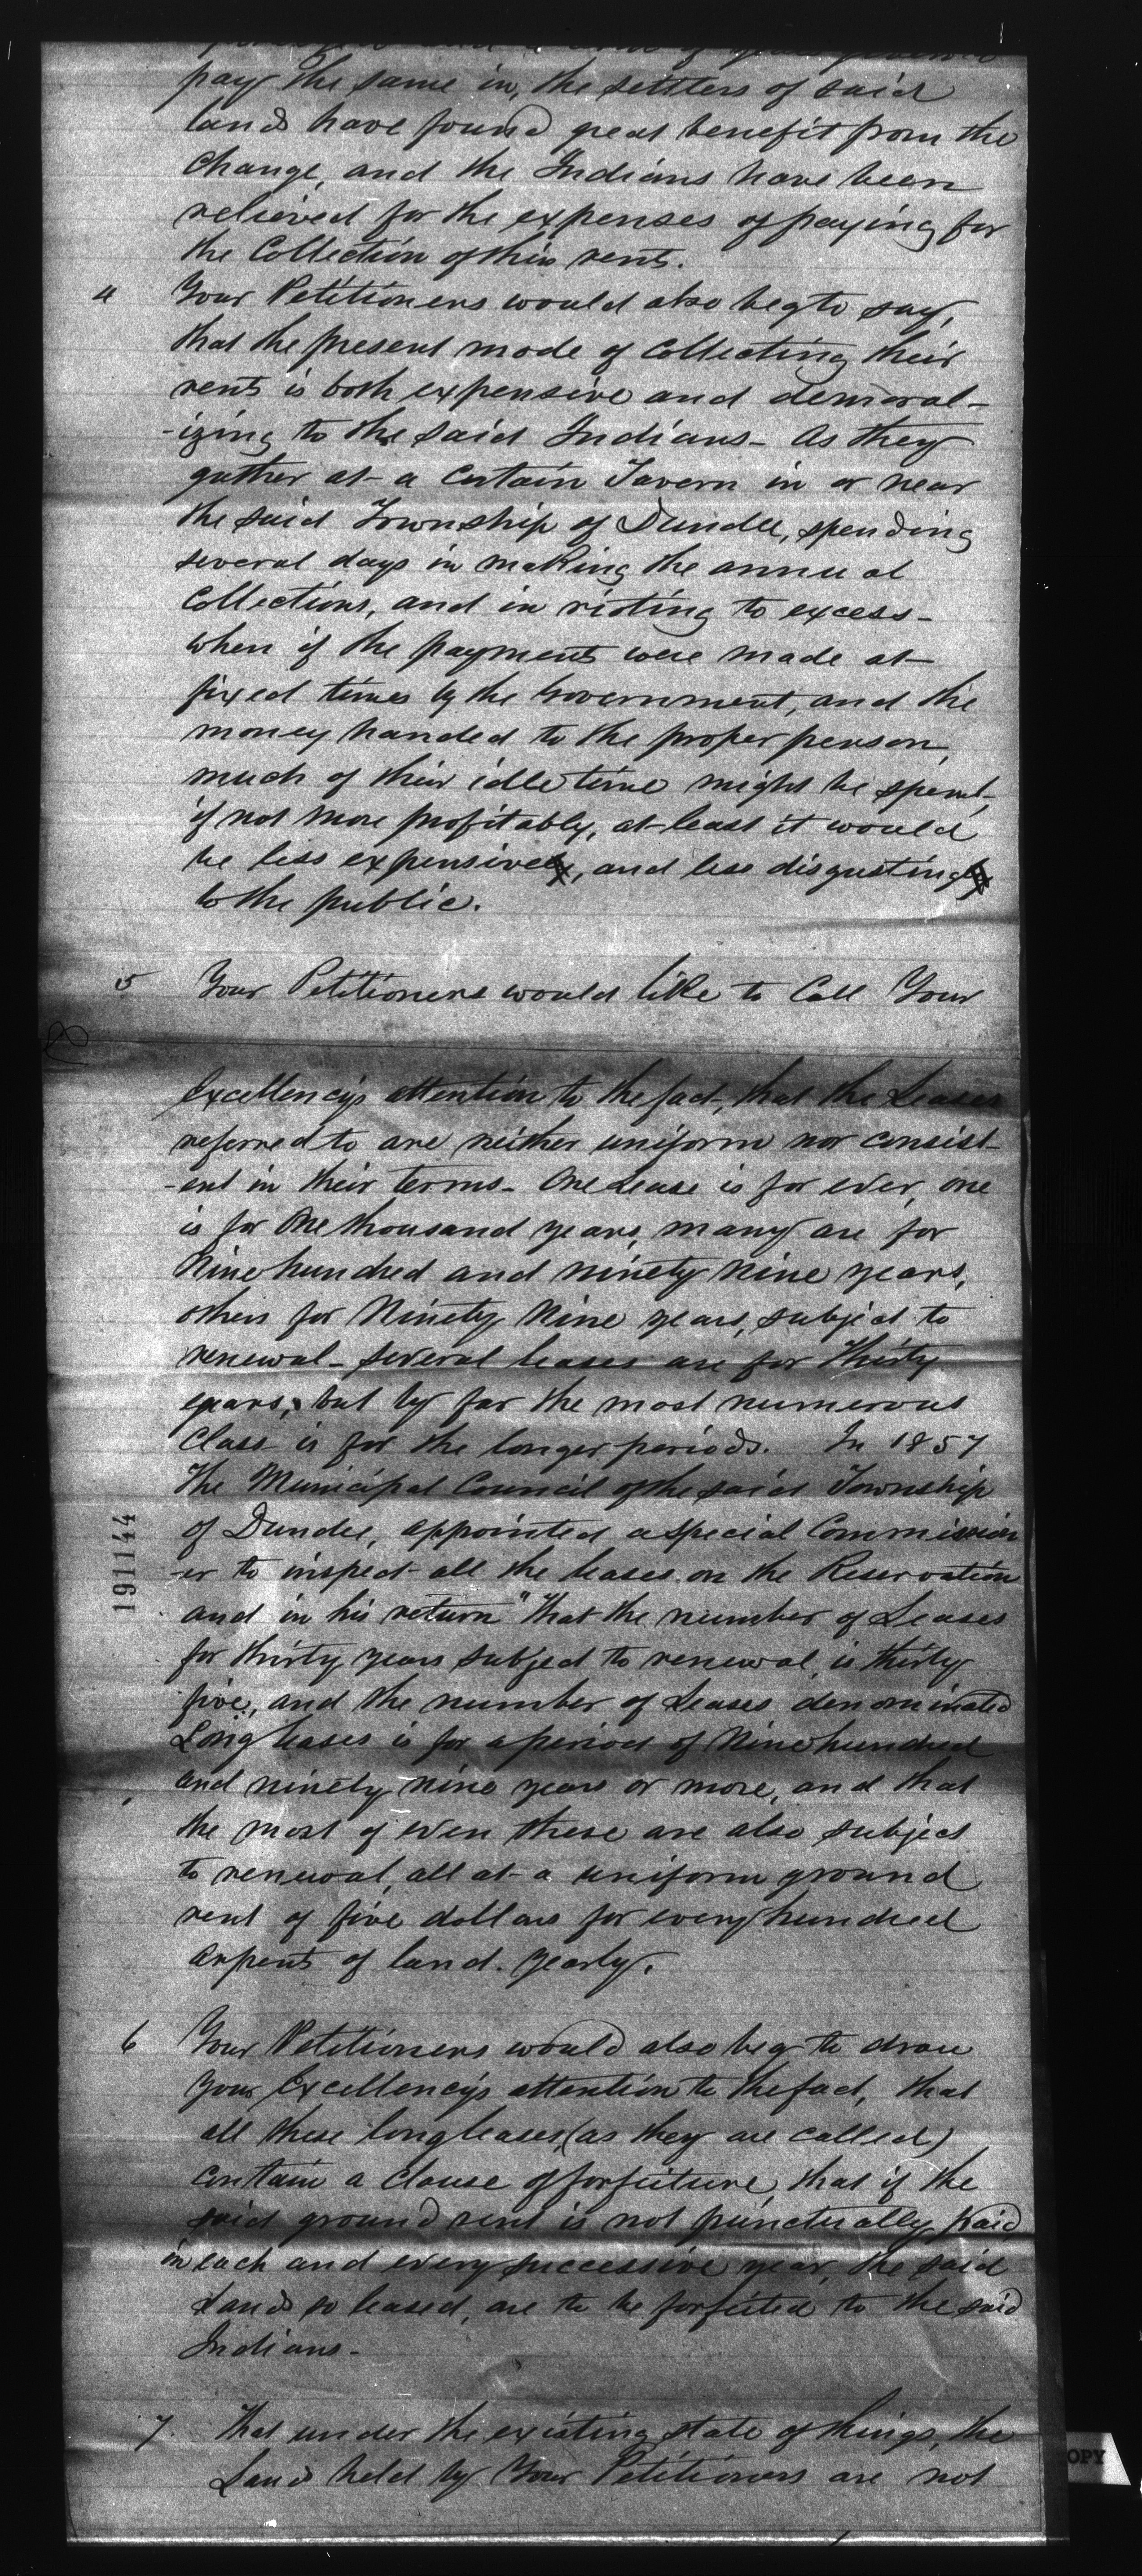 pay the same in, the settlers of said
lands have found great benefit from the
Change, and the Indians have been
relieved for the expenses of paying for
the Collection of this rent.
4 Your Petitioners would also beg to say,
that the present mode of Collecting their
rent is both expensive and demoral-
-izing to the said Indians - As they
gather at a Certain Tavern in or near
the said Township of Dundee, spending
several days in making the annual
Collections, and in rioting to excess -
when if the payments were made at
fixed times by the Government, and the
money handed to the proper person
much of their idle time might be spent,
if not more profitably, at least it would
be less expensive, and less disgusting
to the public.
5 Your Petitioners would like to Call Your
Excellency's attention to the fact, that the Leases
referred to are neither uniform nor consist-
-ent in their terms - One Lease is for ever, one
is for One thousand years, many are for
Nine hundred and ninety nine years,
others for Ninety Nine years, subject to
renewal - several leases are for Thirty
years, but by far the most numerous
Class is for the longer periods. In 1857
The Municipal Council of the said Township
of Dundee, appointed a special Commission
-er to inspect all the leases on the Reservation
and in his return "That the number of Leases
for thirty years subject to renewal is thirty
five, and the number of Leases denominated
Long leases is for a period of Nine hundred
and ninety nine years or more, and that
the most of even these are also subject
to renewal, all at a uniform ground
rent of five dollars for every hundred
arpents of land. yearly.
191144
6 Your Petitioners would also beg to draw
Your Excellency's attention to the fact, that
all these long leases, (as they are called)
Contain a Clause of forfeiture, that if the
said ground rent is not punctually paid
in each and every successive year, the said
Lands so leased, are to be forfeited to the said
Indians -
7. That under the existing state of things, the
Lands held by Your Petitioners are not
OPY